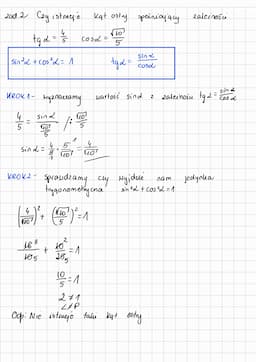 zad.2 Czy istnieje kąt ostry spełniający zależności
tgα = 4/5 cosα = √10/5
sin²α + cos²α = 1 tgα = sinα/cosα
KROK 1 - wyznaczamy wartość sinα z zależności tgα = sinα/cosα
4/5 = sinα/(√10/5) /·√10/5
KROK 2 - sprawdzamy czy wyjdzie nam jedynka
trygonometryczna sin²α + cos²α = 1
10/5 = 1
2 ≠ 1
L ≠ P
Odp: Nie istnieje taki kąt ostry